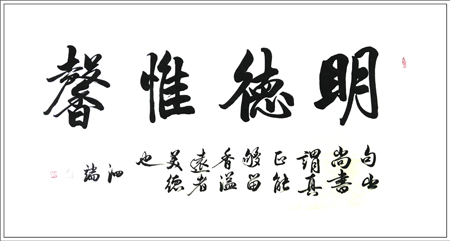 明德惟馨
句出
尚書
謂真
正能
够留
香溢
遠者
美德
也
瑞